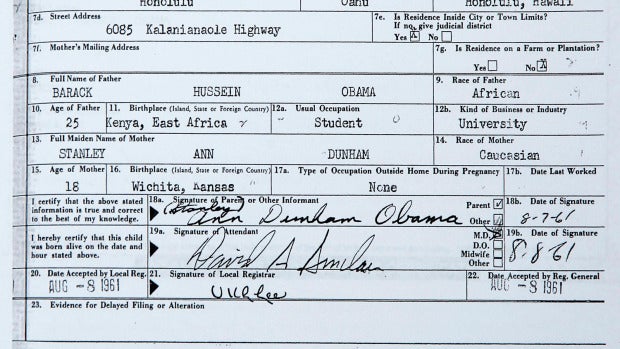 Honolulu Oahu Honolulu, Hawaii
7d. Street Address 7e. Is Residence Inside City or Town Limits?
6085 Kalanianaole Highway If no, give judicial district
Yes X No
7f. Mother's Mailing Address 7g. Is Residence on a Farm or Plantation?
Yes No X
8. Full Name of Father 9. Race of Father
BARACK HUSSEIN OBAMA African
10. Age of Father 11. Birthplace (Island, State or Foreign Country) 12a. Usual Occupation 12b. Kind of Business or Industry
25 Kenya, East Africa Student University
13. Full Maiden Name of Mother 14. Race of Mother
STANLEY ANN DUNHAM Caucasian
15. Age of Mother 16. Birthplace (Island, State or Foreign Country) 17a. Type of Occupation Outside Home During Pregnancy 17b. Date Last Worked
18 Wichita, Kansas None
I certify that the above stated information is true and correct to the best of my knowledge.
18a. Signature of Parent or Other Informant Parent Other 18b. Date of Signature
(Stanley) Ann Dunham Obama 8-7-61
I hereby certify that this child was born alive on the date and hour stated above.
19a. Signature of Attendant M.D. D.O. Midwife Other 19b. Date of Signature
David A Sinclair 8-8-61
20. Date Accepted by Local Reg. 21. Signature of Local Registrar 22. Date Accepted by Reg. General
AUG -8 1961 U K L Lee AUG -8 1961
23. Evidence for Delayed Filing or Alteration